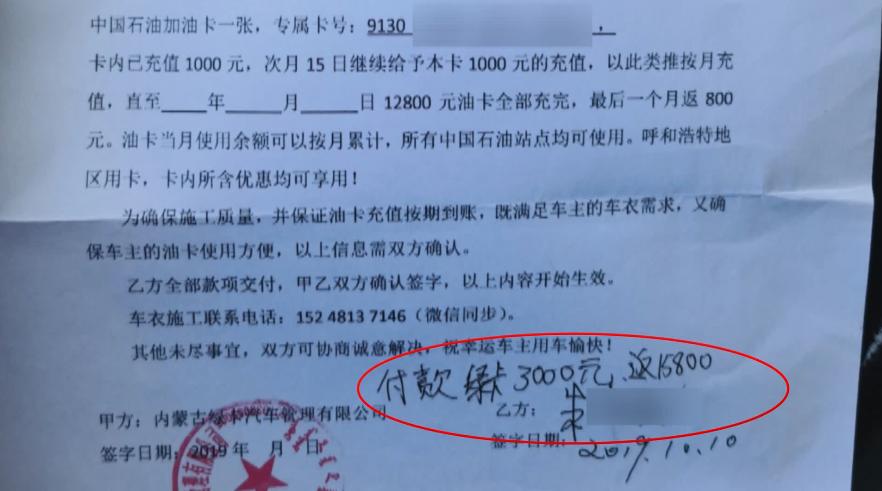 中国石油加油卡一张，专属卡号：9130                ，
卡内已充值1000元，次月15日继续给予本卡1000元的充值，以此类推按月充
值，直至____年____月____日12800元油卡全部充完，最后一个月返800
元。油卡当月使用余额可以按月累计，所有中国石油站点均可使用。呼和浩特地
区用卡，卡内所含优惠均可享用！
为确保施工质量，并保证油卡充值按期到账，既满足车主的车衣需求，又确
保车主的油卡使用方便，以上信息需双方确认。
乙方全部款项交付，甲乙双方确认签字，以上内容开始生效。
车衣施工联系电话：152 4813 7146（微信同步）。
其他未尽事宜，双方可协商诚意解决，祝幸运车主用车愉快！
付款 绿卡 3000元，返15800
甲方：内蒙古绿卡汽车管理有限公司
乙方：
签字日期：2019年 月 日
签字日期：2019.10.10